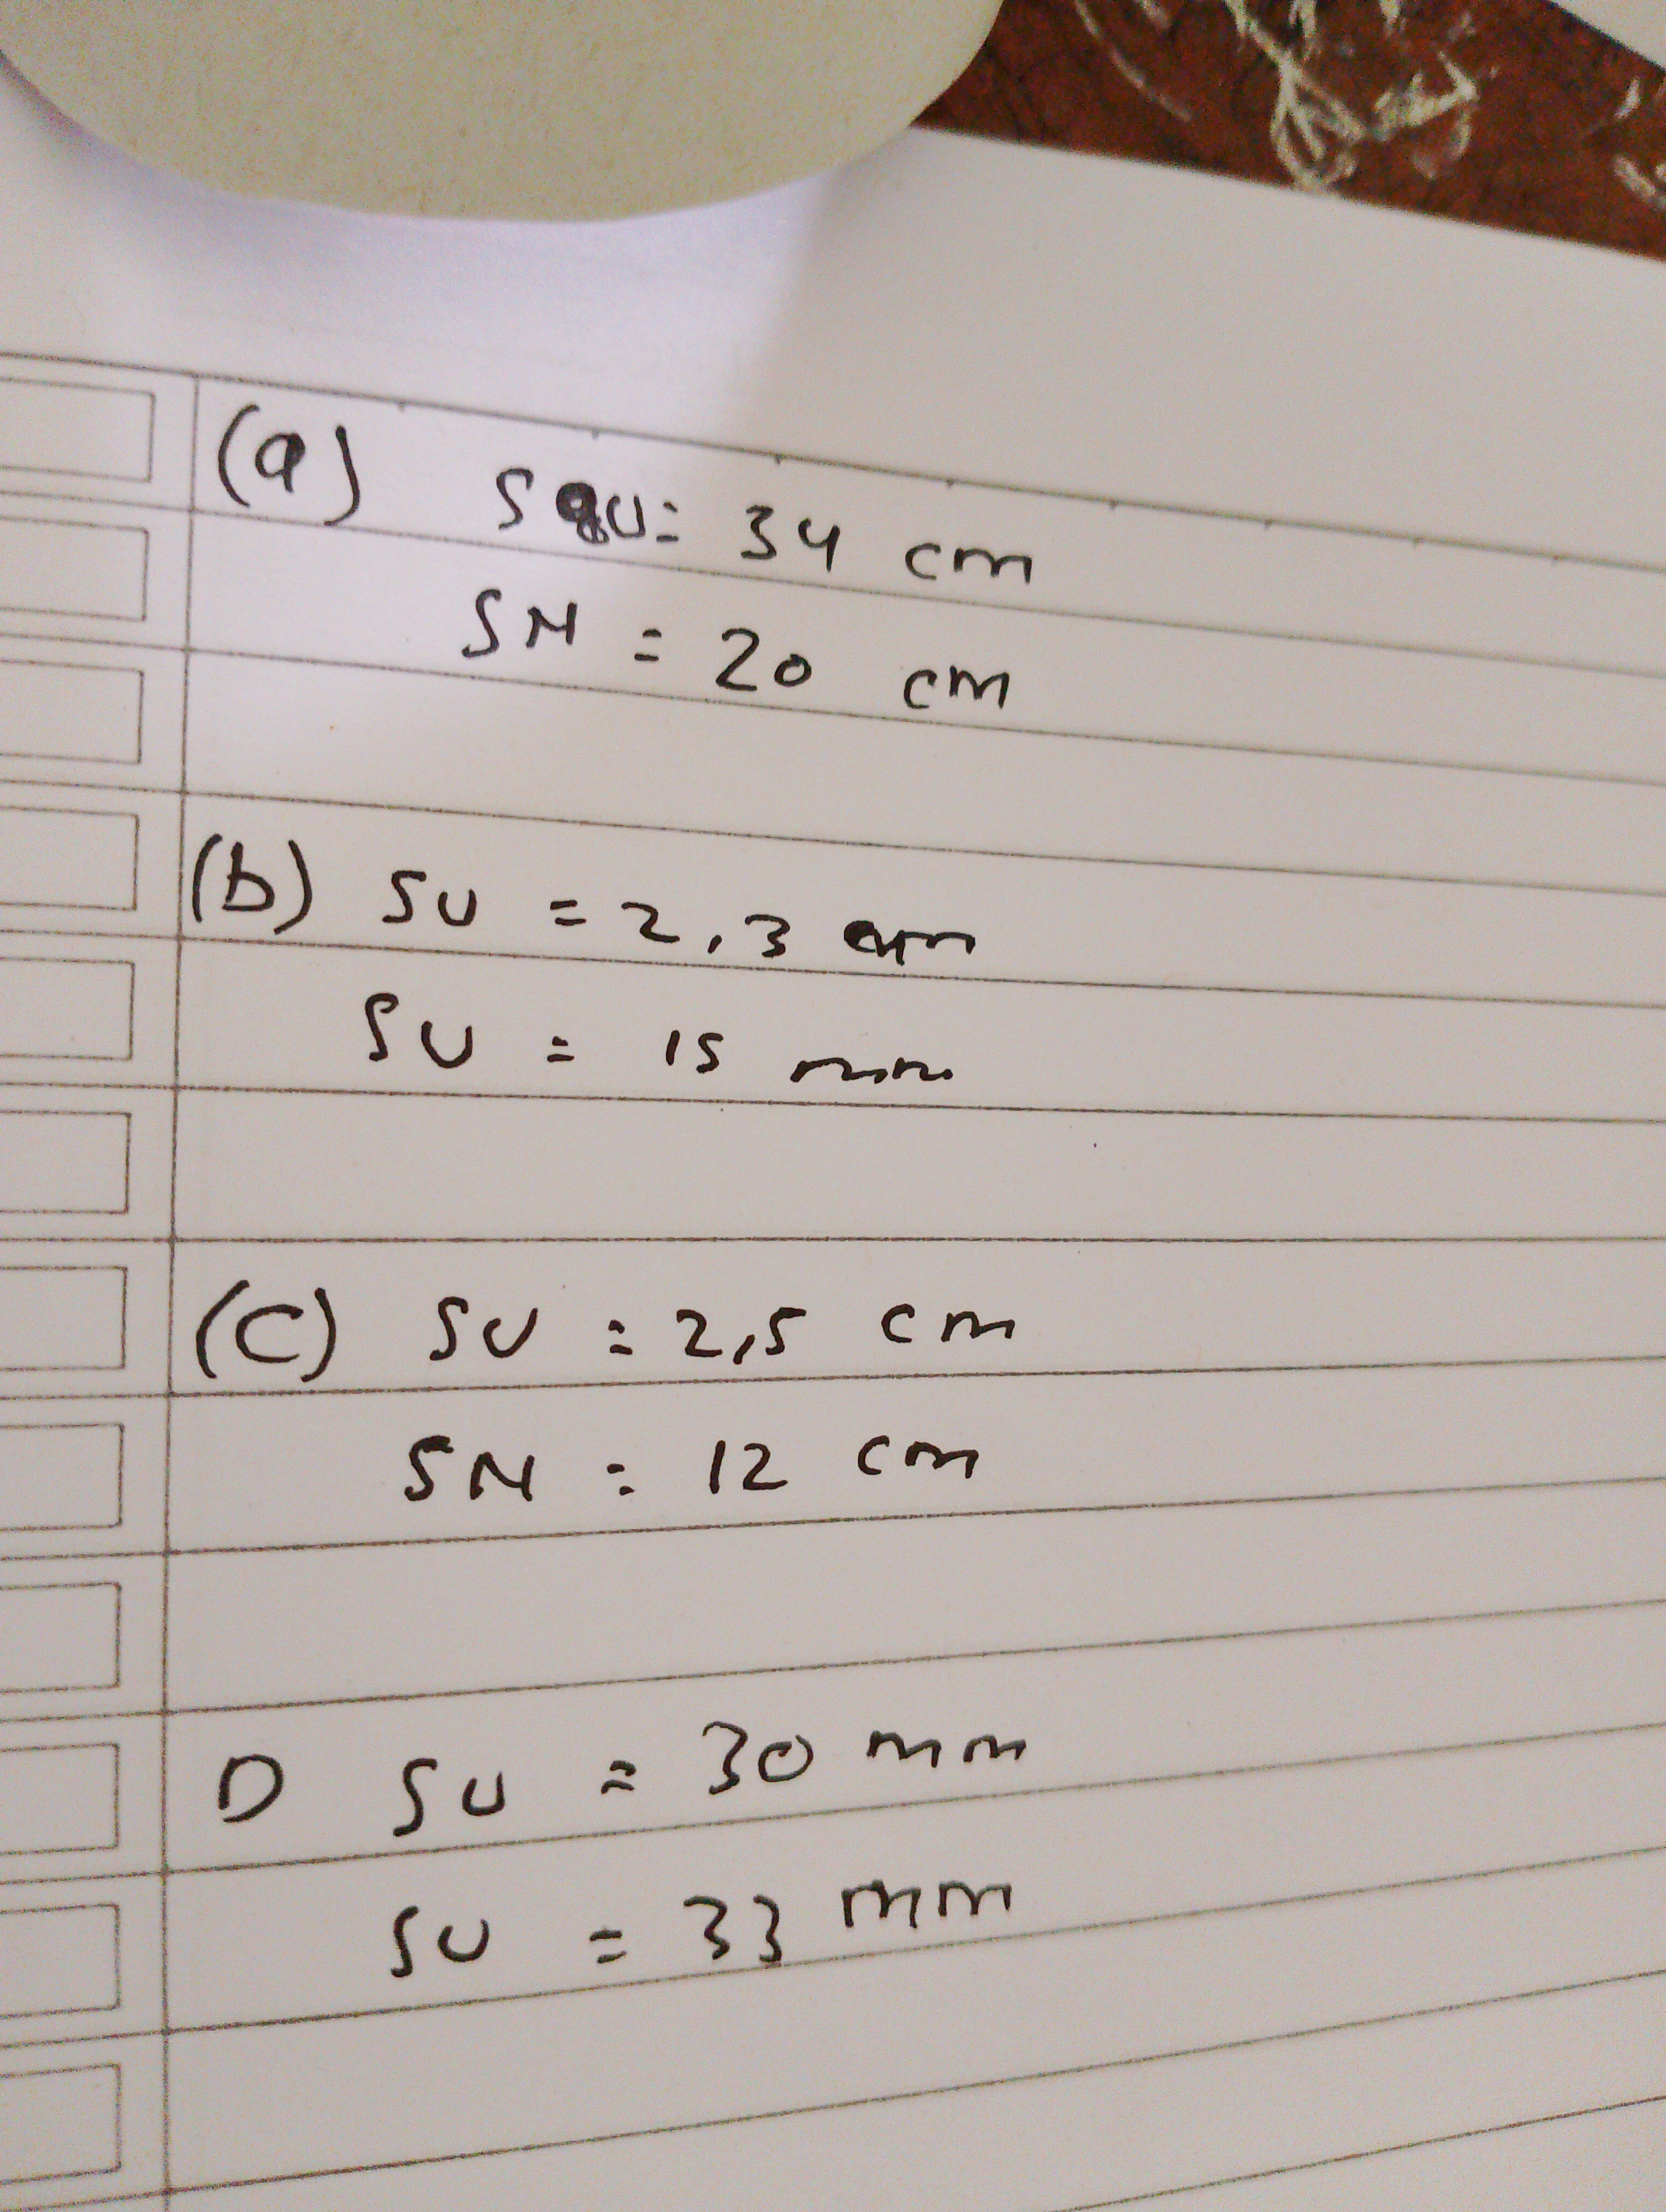 (a) SU = 34 cm
SN = 20 cm
(b) SU = 2,3 cm
SU = 15 mm
(C) SU = 2,5 cm
SN = 12 cm
D SU = 30 mm
SU = 33 mm